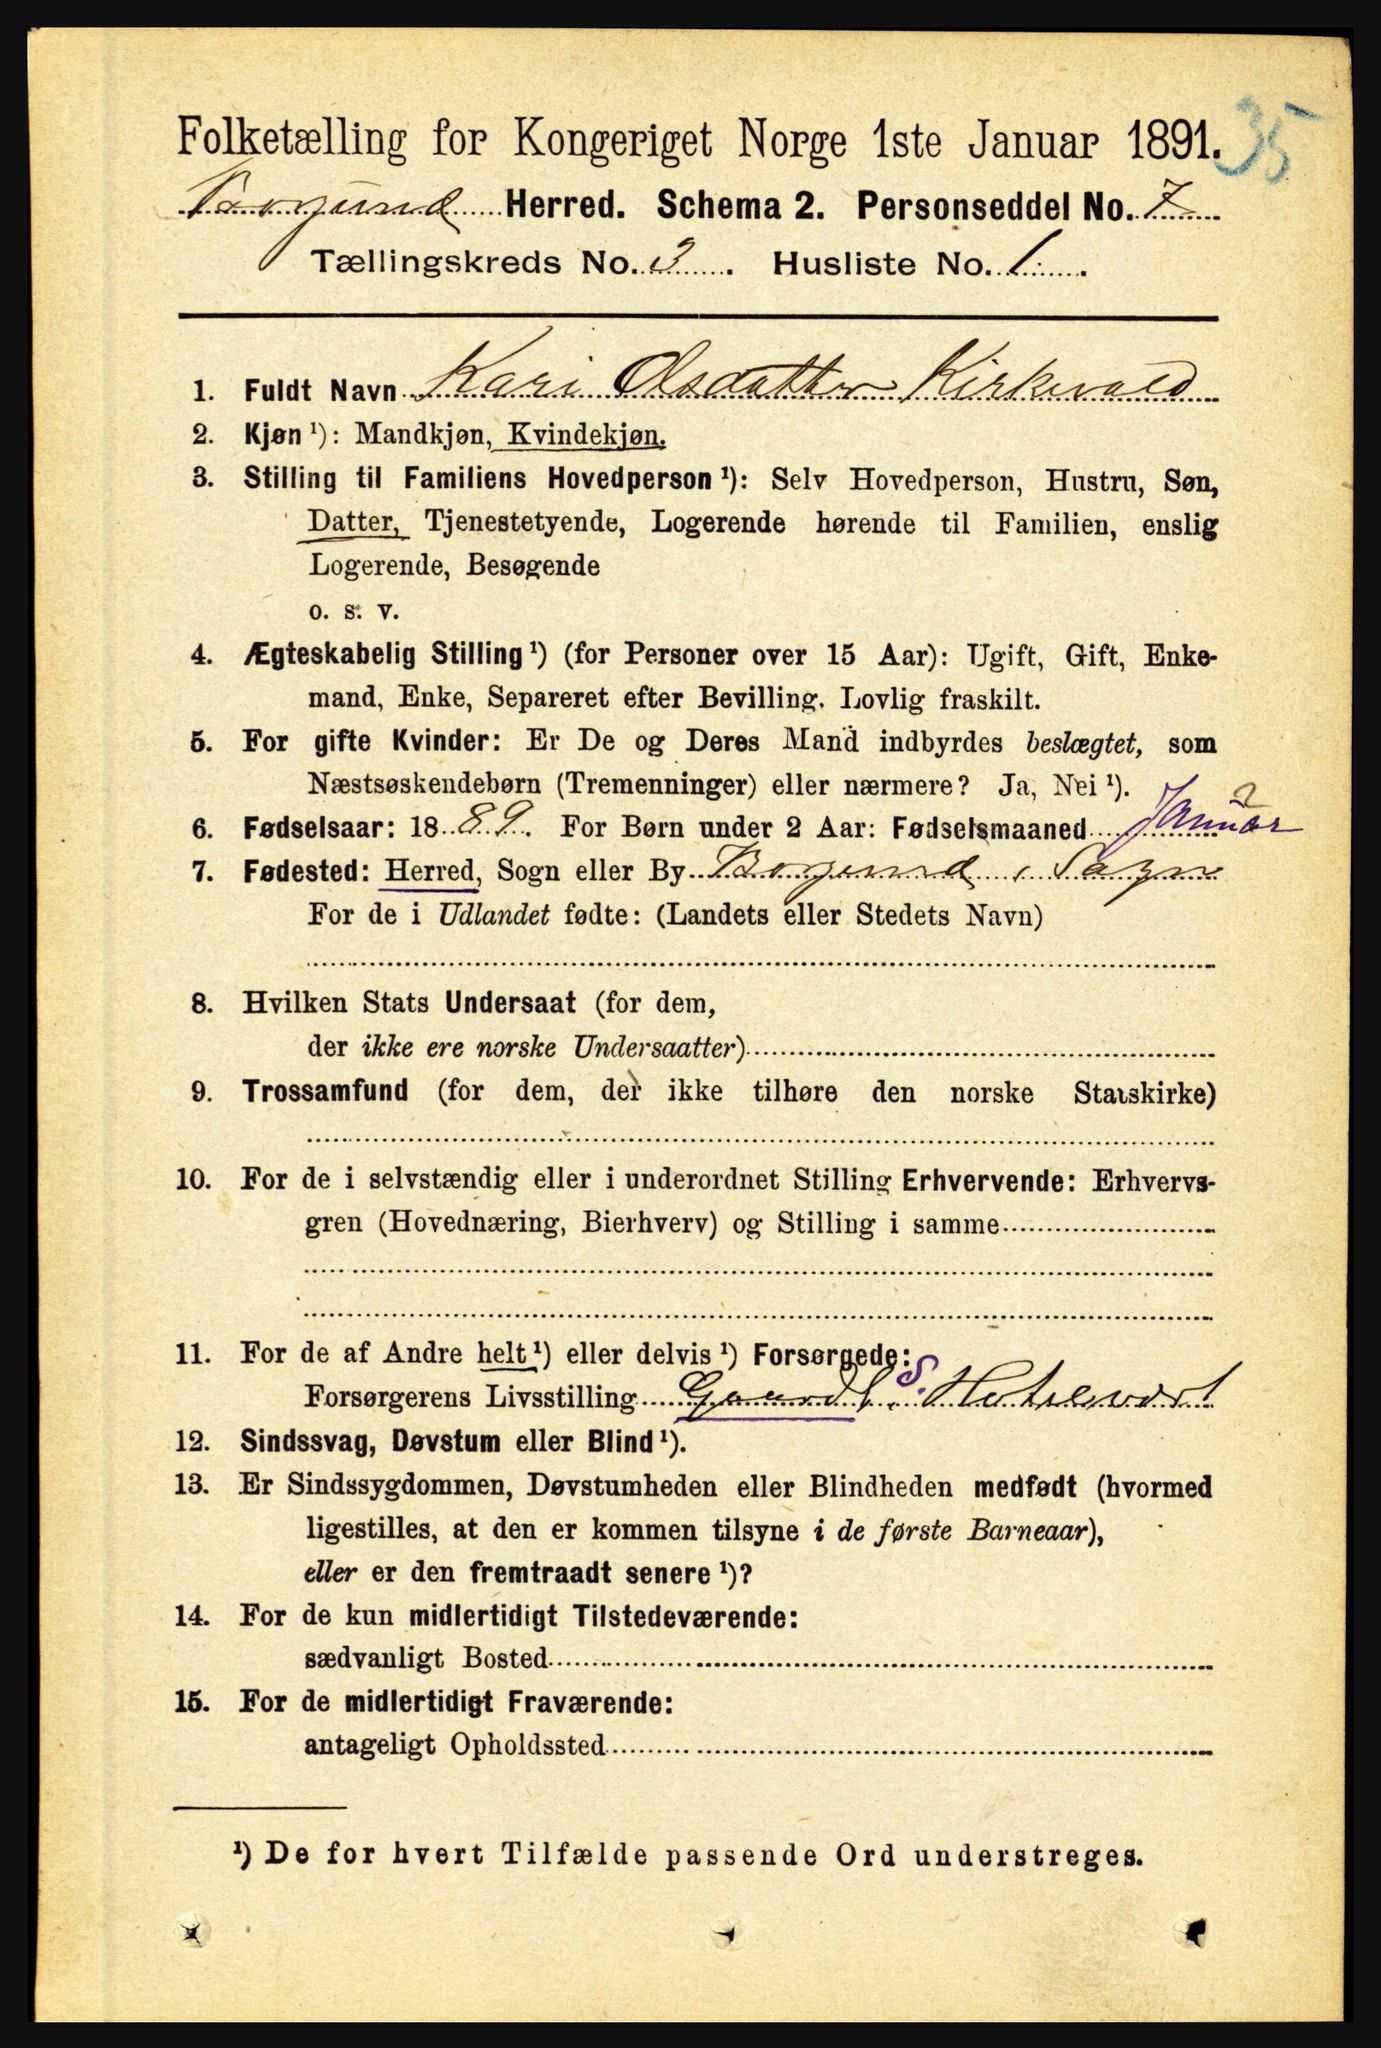 Folketælling for Kongeriget Norge 1ste Januar 1891.
35
Borgund Herred. Schema 2. Personseddel No. 7
Tællingskreds No. 3. Husliste No. 1.
1. Fuldt Navn Kari Olsdatter Kirkevold
2. Kjøn ¹): Mandkjøn, Kvindekjøn.
3. Stilling til Familiens Hovedperson ¹): Selv Hovedperson, Hustru, Søn,
Datter, Tjenestetyende, Logerende hørende til Familien, enslig
Logerende, Besøgende
o. s. v.
4. Ægteskabelig Stilling ¹) (for Personer over 15 Aar): Ugift, Gift, Enke-
mand, Enke, Separeret efter Bevilling. Lovlig fraskilt.
5. For gifte Kvinder: Er De og Deres Mand indbyrdes beslægtet, som
Næstsøskendebørn (Tremenninger) eller nærmere? Ja, Nei ¹).
2
6. Fødselsaar: 1889. For Børn under 2 Aar: Fødselsmaaned Januar
7. Fødested: Herred, Sogn eller By Borgund i Sogn
For de i Udlandet fødte: (Landets eller Stedets Navn)
8. Hvilken Stats Undersaat (for dem,
der ikke ere norske Undersaatter)
9. Trossamfund (for dem, der ikke tilhøre den norske Statskirke)
10. For de i selvstændig eller i underordnet Stilling Erhvervende: Erhvervs-
gren (Hovednæring, Bierhverv) og Stilling i samme
11. For de af Andre helt ¹) eller delvis ¹) Forsørgede:
Forsørgerens Livsstilling Gaardb. S. Hotelvært
12. Sindssvag, Døvstum eller Blind ¹).
13. Er Sindssygdommen, Døvstumheden eller Blindheden medfødt (hvormed
ligestilles, at den er kommen tilsyne i de første Barneaar),
eller er den fremtraadt senere ¹)?
14. For de kun midlertidigt Tilstedeværende:
sædvanligt Bosted
15. For de midlertidigt Fraværende:
antageligt Opholdssted
¹) De for hvert Tilfælde passende Ord understreges.